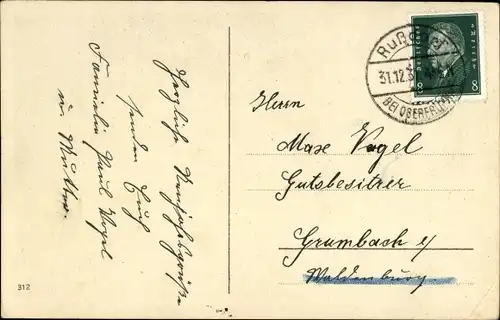 Herzliche Neujahrsgrüße
senden Euch
Familie Paul Vogel
u. Mutter.
Rußdorf
31.12.3
BEI OBERFROHNA
DEUTSCHES REICH
8 8
Herrn
Max Vogel
Gutsbesitzer
Grumbach b/
Waldenburg
312